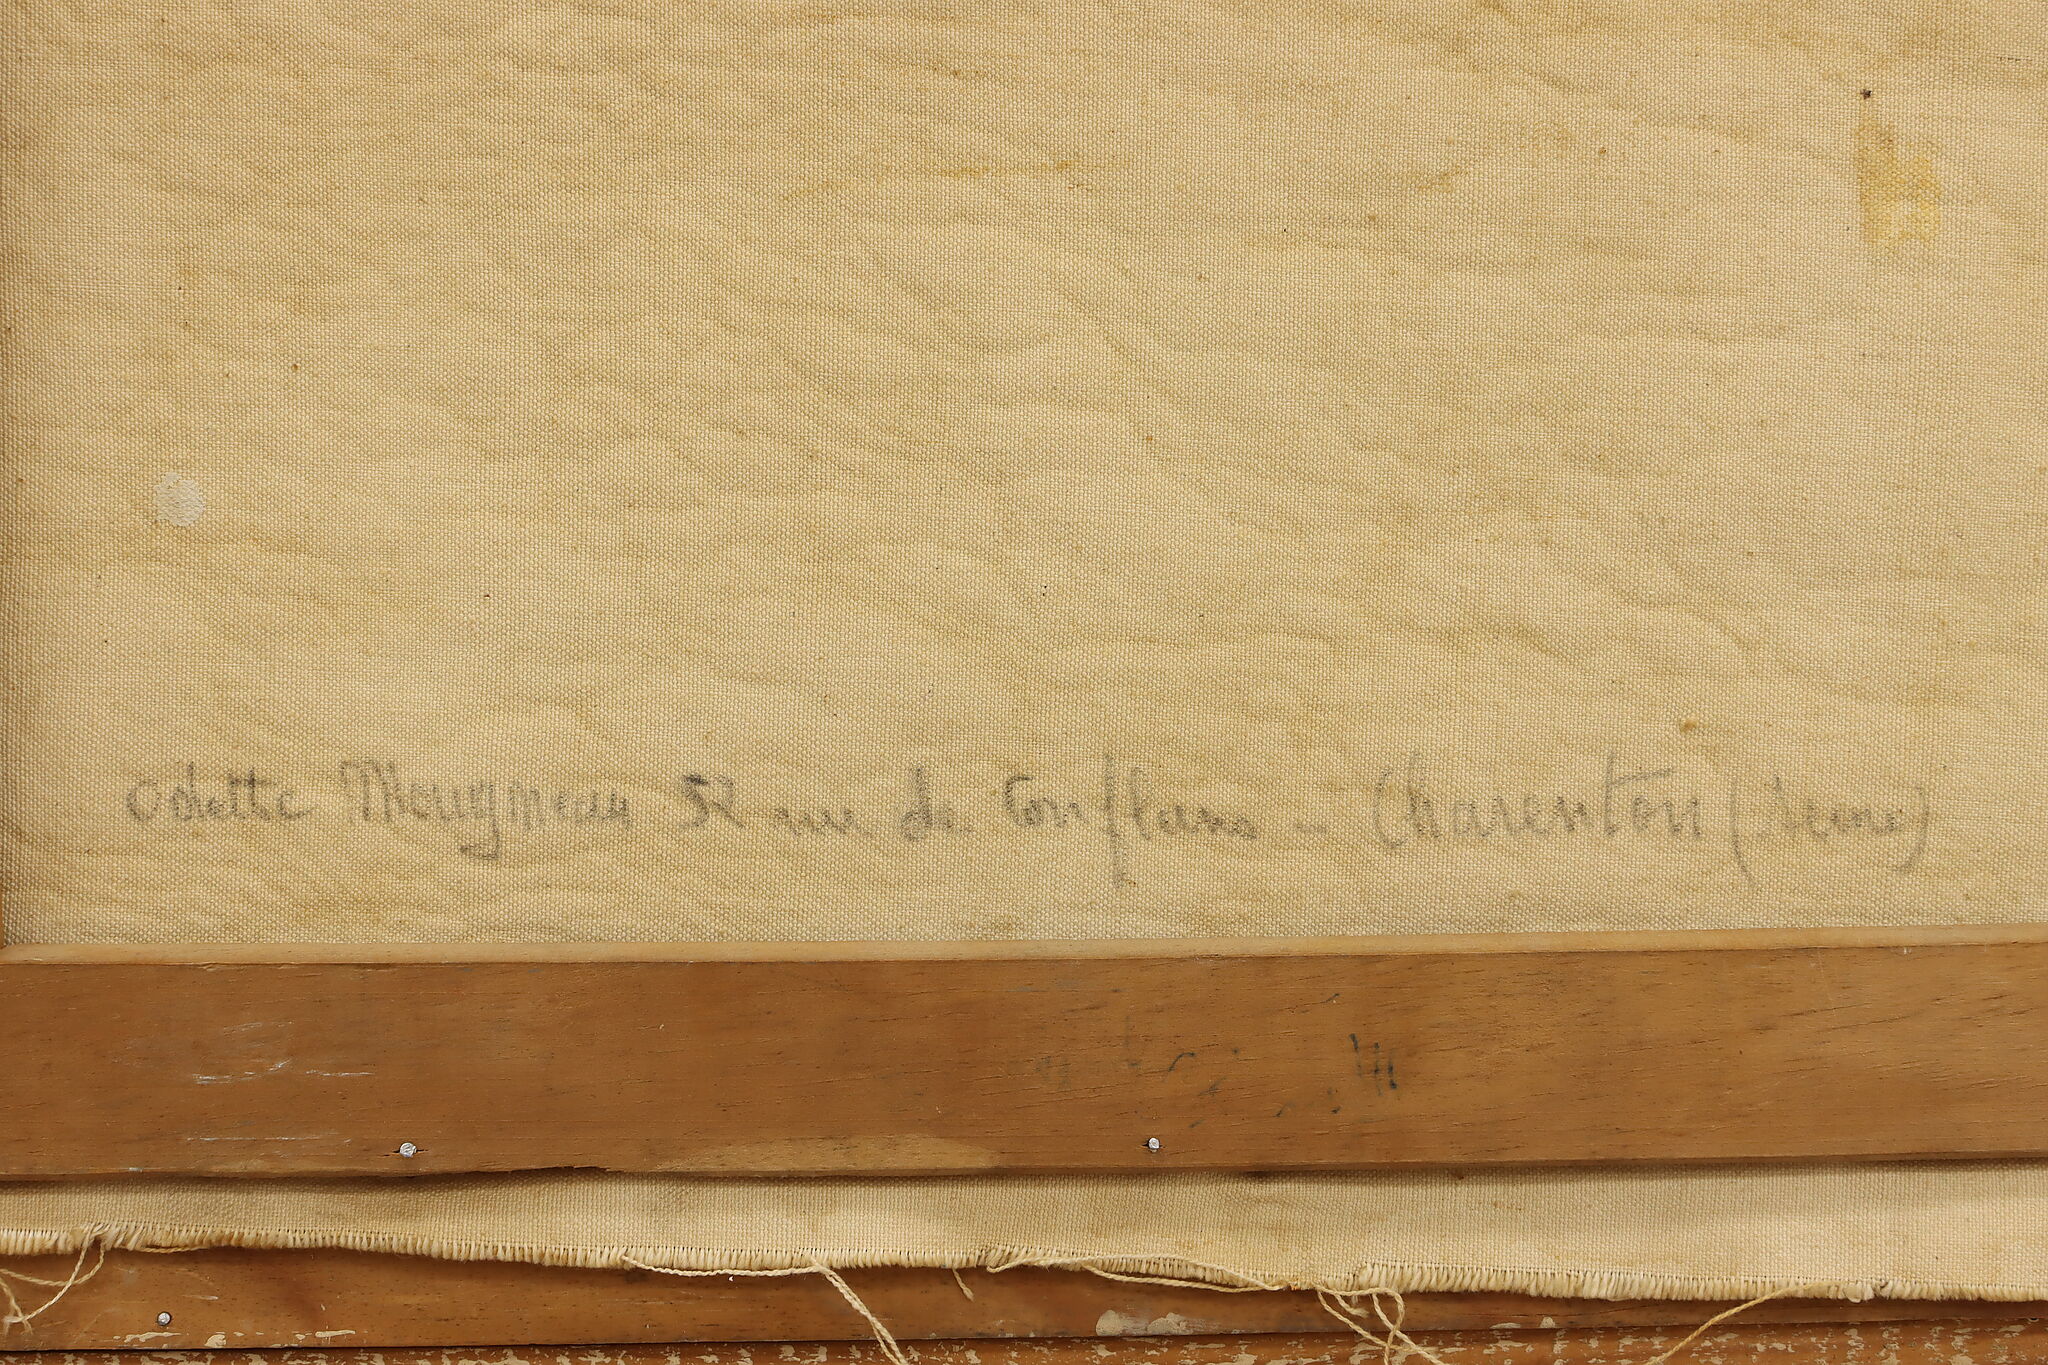 Odette Mougneau 52 rue de Conflans - Charenton (Seine)